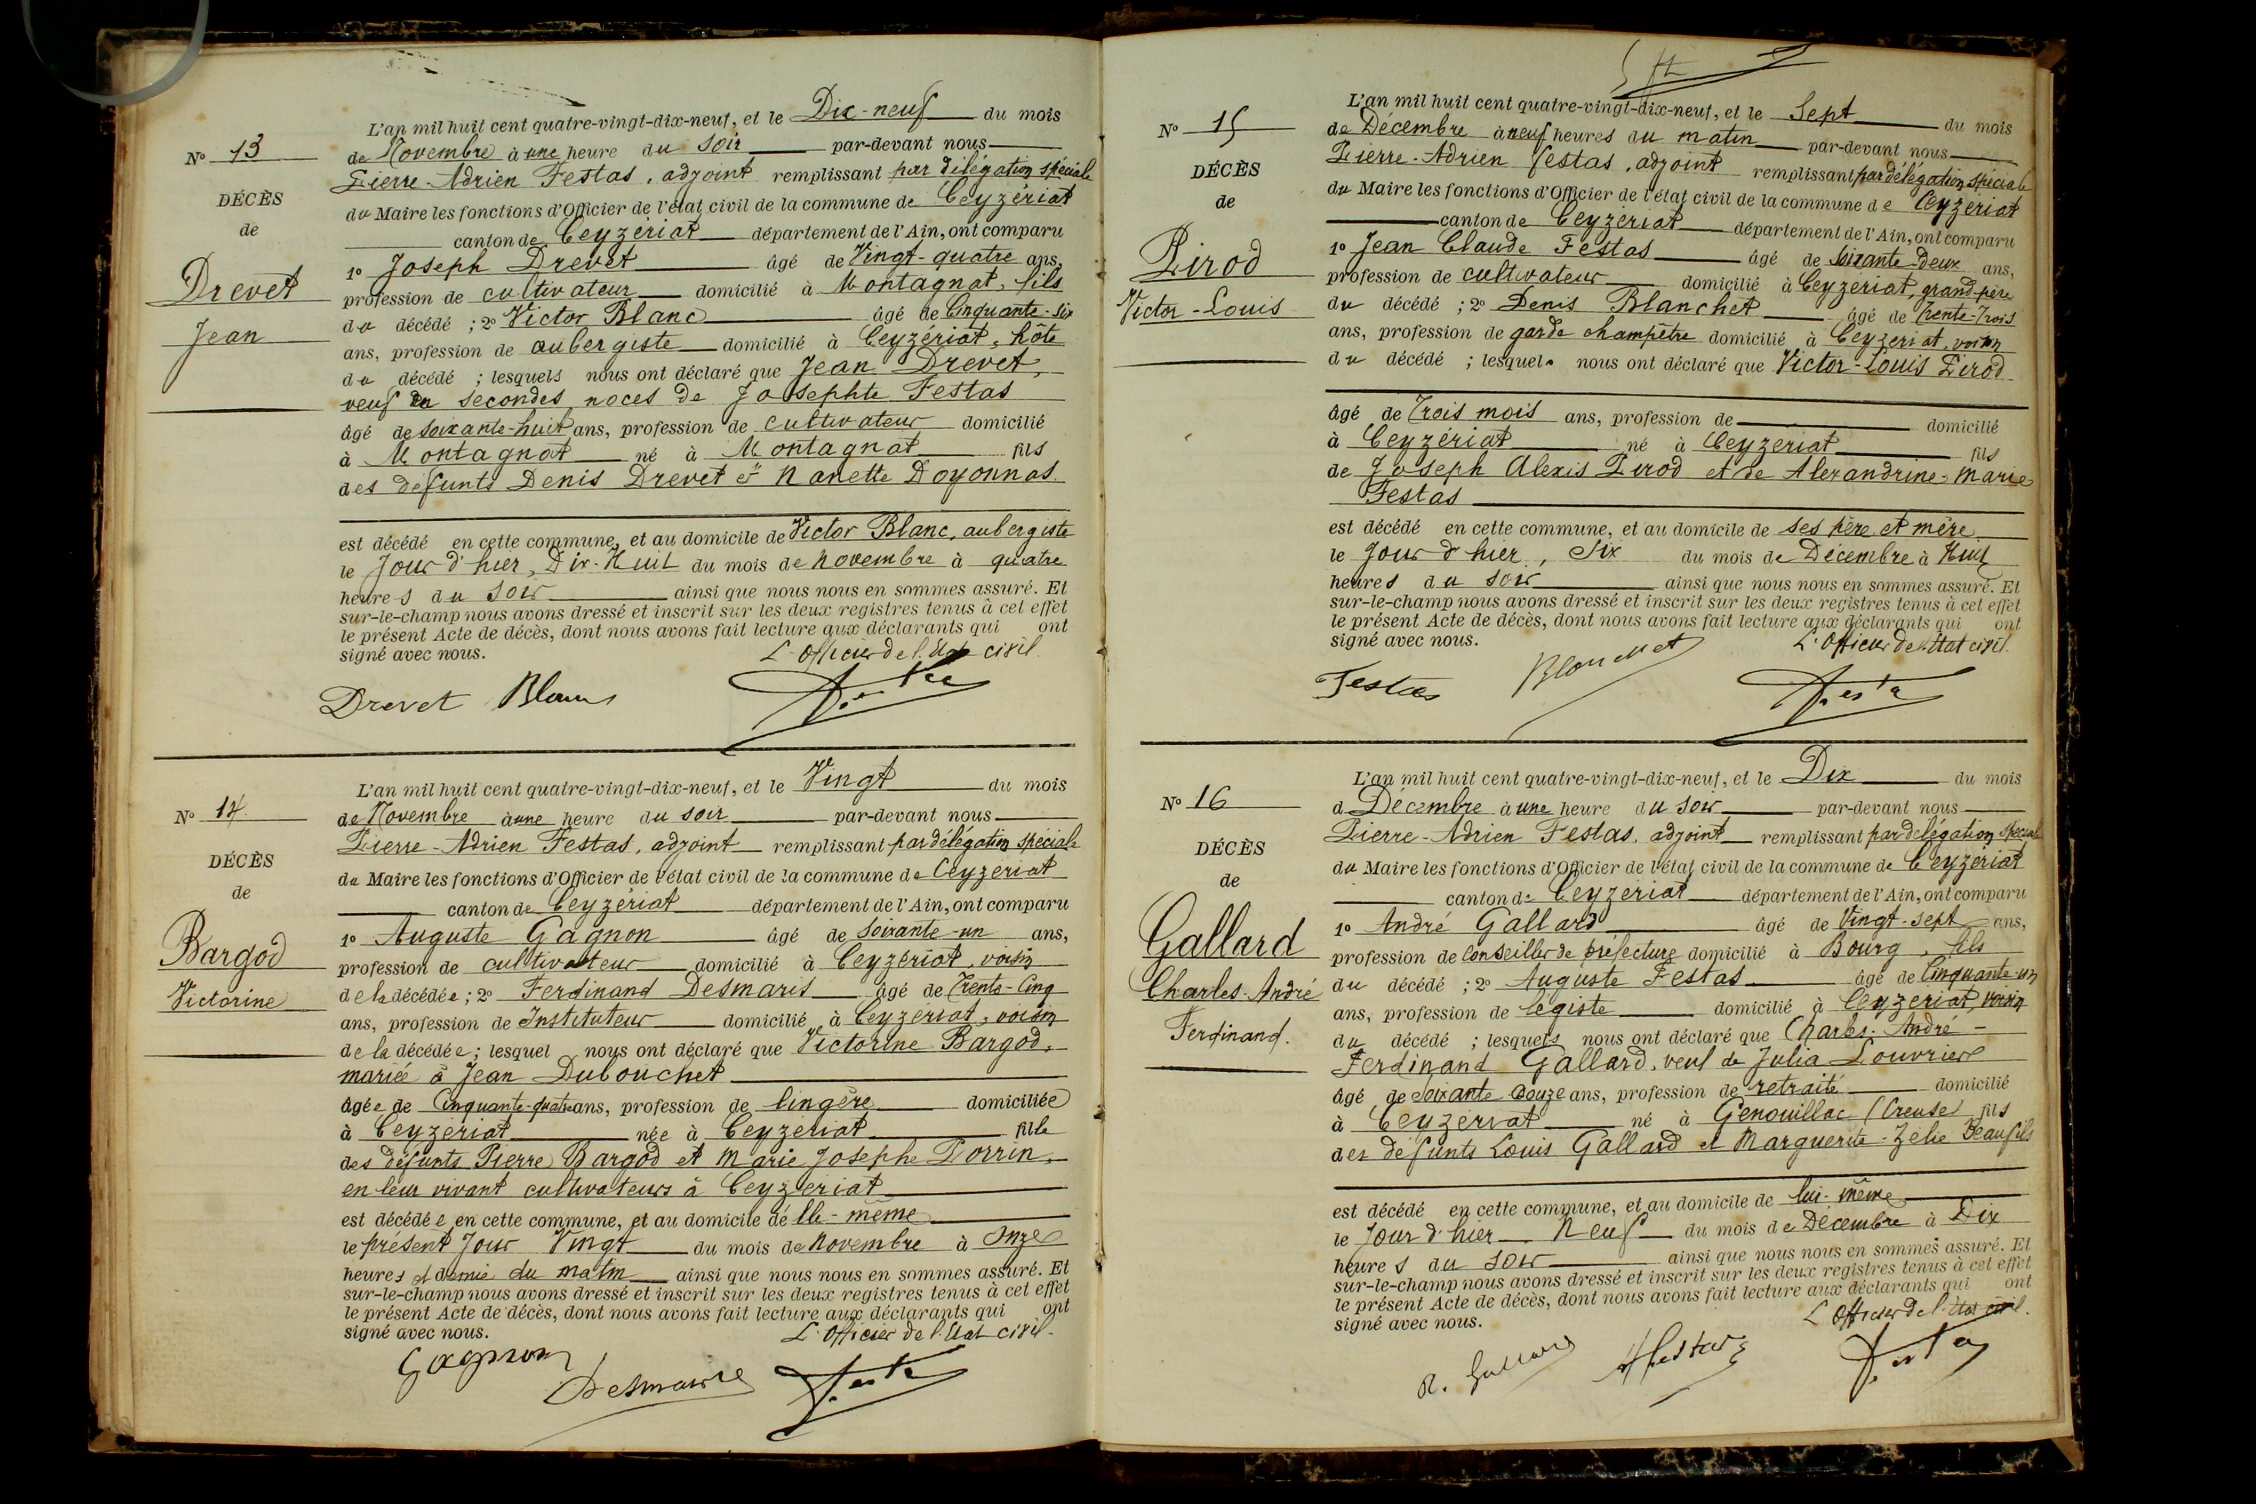 L'an mil huit cent quatre-vingt-dix-neuf, et le Dix-neuf du mois
No 13
de Novembre à une heure du soir par-devant nous
Pierre-Adrien Festas, adjoint remplissant par délégation spéciale
DÉCÈS
du Maire les fonctions d'Officier de l'état civil de la commune de Ceyzériat
de
canton de Ceyzériat département de l'Ain, ont comparu
1o Joseph Drevet âgé de Vingt-quatre ans,
Drevet
profession de cultivateur domicilié à Montagnat, fils
du décédé ; 2o Victor Blanc âgé de Cinquante-six
Jean
ans, profession de aubergiste domicilié à Ceyzériat, hôte
du décédé ; lesquels nous ont déclaré que Jean Drevet,
veuf en secondes noces de Josephte Festas
âgé de soixante-huit ans, profession de cultivateur domicilié
à Montagnat né à Montagnat fils
des défunts Denis Drevet et Nanette Doyonnas.
est décédé en cette commune, et au domicile de Victor Blanc, aubergiste
le Jour d'hier, Dix-Huit du mois de Novembre à quatre
heures du soir ainsi que nous nous en sommes assuré. Et
sur-le-champ nous avons dressé et inscrit sur les deux registres tenus à cet effet
le présent Acte de décès, dont nous avons fait lecture aux déclarants qui ont
signé avec nous.
L'Officier de l'Etat civil
Drevet Blanc
L'an mil huit cent quatre-vingt-dix-neuf, et le Vingt du mois
No 14
de Novembre à une heure du soir par-devant nous
Pierre-Adrien Festas, adjoint remplissant par délégation spéciale
DÉCÈS
du Maire les fonctions d'Officier de l'état civil de la commune de Ceyzeriat
de
canton de Ceyzériat département de l'Ain, ont comparu
1o Auguste Gagnon âgé de soixante-un ans,
Bargod
profession de cultivateur domicilié à Ceyzériat, voisin
Victorine
de la décédée ; 2o Ferdinand Desmaris âgé de Trente-Cinq
ans, profession de Instituteur domicilié à Ceyzériat, voisin
de la décédée ; lesquel nous ont déclaré que Victorine Bargod,
mariée à Jean Dubouchet
âgée de Cinquante-quatre ans, profession de lingère domiciliée
à Ceyzériat née à Ceyzeriat fille
des défunts Pierre Bargod et Marie Josephe Porrin,
en leur vivant cultivateurs à Ceyzeriat
est décédée en cette commune, et au domicile de Elle-même
le présent Jour Vingt du mois de Novembre à Onze
heures et demie du matin ainsi que nous nous en sommes assuré. Et
sur-le-champ nous avons dressé et inscrit sur les deux registres tenus à cet effet
le présent Acte de décès, dont nous avons fait lecture aux déclarants qui ont
signé avec nous.
L'Officier de l'Etat civil.
Gagnon
Desmaris
L'an mil huit cent quatre-vingt-dix-neuf, et le Sept du mois
No 15
de Décembre à neuf heures du matin par-devant nous
Pierre-Adrien Festas, adjoint remplissant par délégation spéciale
DÉCÈS
du Maire les fonctions d'Officier de l'état civil de la commune de Ceyzeriat
de
canton de Ceyzeriat département de l'Ain, ont comparu
1o Jean Claude Festas âgé de Soixante-deux ans,
Pirod
profession de cultivateur domicilié à Ceyzeriat, grand-père
Victor-Louis
du décédé ; 2o Denis Blanchet âgé de Trente-Trois
ans, profession de garde champêtre domicilié à Ceyzeriat, voisin
du décédé ; lesquels nous ont déclaré que Victor-Louis Pirod
âgé de Trois mois ans, profession de domicilié
à Ceyzériat né à Ceyzeriat fils
de Joseph Alexis Pirod et de Alexandrine-Marie
Festas
est décédé en cette commune, et au domicile de ses père et mère
le Jour d'hier, Six du mois de Décembre à Huit
heures du soir ainsi que nous nous en sommes assuré. Et
sur-le-champ nous avons dressé et inscrit sur les deux registres tenus à cet effet
le présent Acte de décès, dont nous avons fait lecture aux déclarants qui ont
signé avec nous.
L'Officier de l'Etat civil.
Festas Blanchet
L'an mil huit cent quatre-vingt-dix-neuf, et le Dix du mois
No 16
d Décembre à une heure du soir par-devant nous
Pierre-Adrien Festas, adjoint remplissant par délégation spéciale
DÉCÈS
du Maire les fonctions d'Officier de l'état civil de la commune de Ceyzériat
de
canton de Ceyzeriat département de l'Ain, ont comparu
1o André Gallard âgé de Vingt-sept ans,
Gallard
profession de Conseiller de préfecture domicilié à Bourg, fils
Charles-André
du décédé ; 2o Auguste Festas âgé de Cinquante-un
ans, profession de légiste domicilié à Ceyzeriat, voisin
Ferdinand.
du décédé ; lesquels nous ont déclaré que Charles-André-
Ferdinand Gallard, veuf de Julia Louvrier
âgé de soixante douze ans, profession de retraité domicilié
à Ceyzeriat né à Genouillac (Creuse) fils
des défunts Louis Gallard et Marguerite-Zélie Beaufils
est décédé en cette commune, et au domicile de lui-même
le Jour d'hier Neuf du mois de Décembre à Dix
heures du soir ainsi que nous nous en sommes assuré. Et
sur-le-champ nous avons dressé et inscrit sur les deux registres tenus à cet effet
le présent Acte de décès, dont nous avons fait lecture aux déclarants qui ont
signé avec nous.
L'Officier de l'Etat civil.
A. Gallard